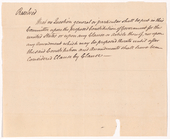 Resolved
That no Question general or particular shall be put in this
Committee upon the proposed Constitution of Government for the
united States or upon any Clause or Article thereof, nor upon
any amendment which may be proposed thereto until after
the said Constitution and Amendments shall have been
considered Clause by Clause